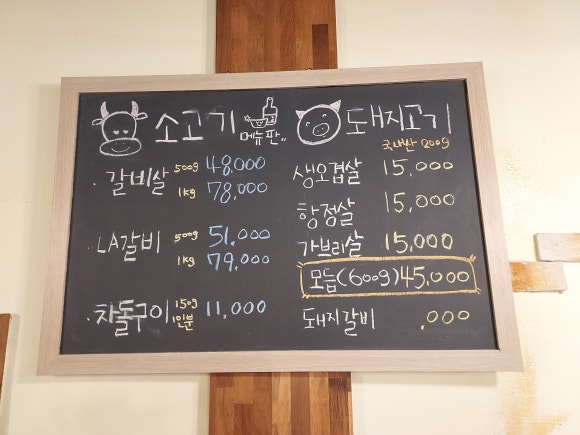 소고기
메뉴판
갈비살 500g 48,000
1kg 78,000
LA갈비 500g 51,000
1kg 79,000
차돌구이 150g 11,000
1인분
돼지고기
국내산 200g
생오겹살 15,000
항정살 15,000
가브리살 15,000
모듬(600g) 45,000
돼지갈비 ,000